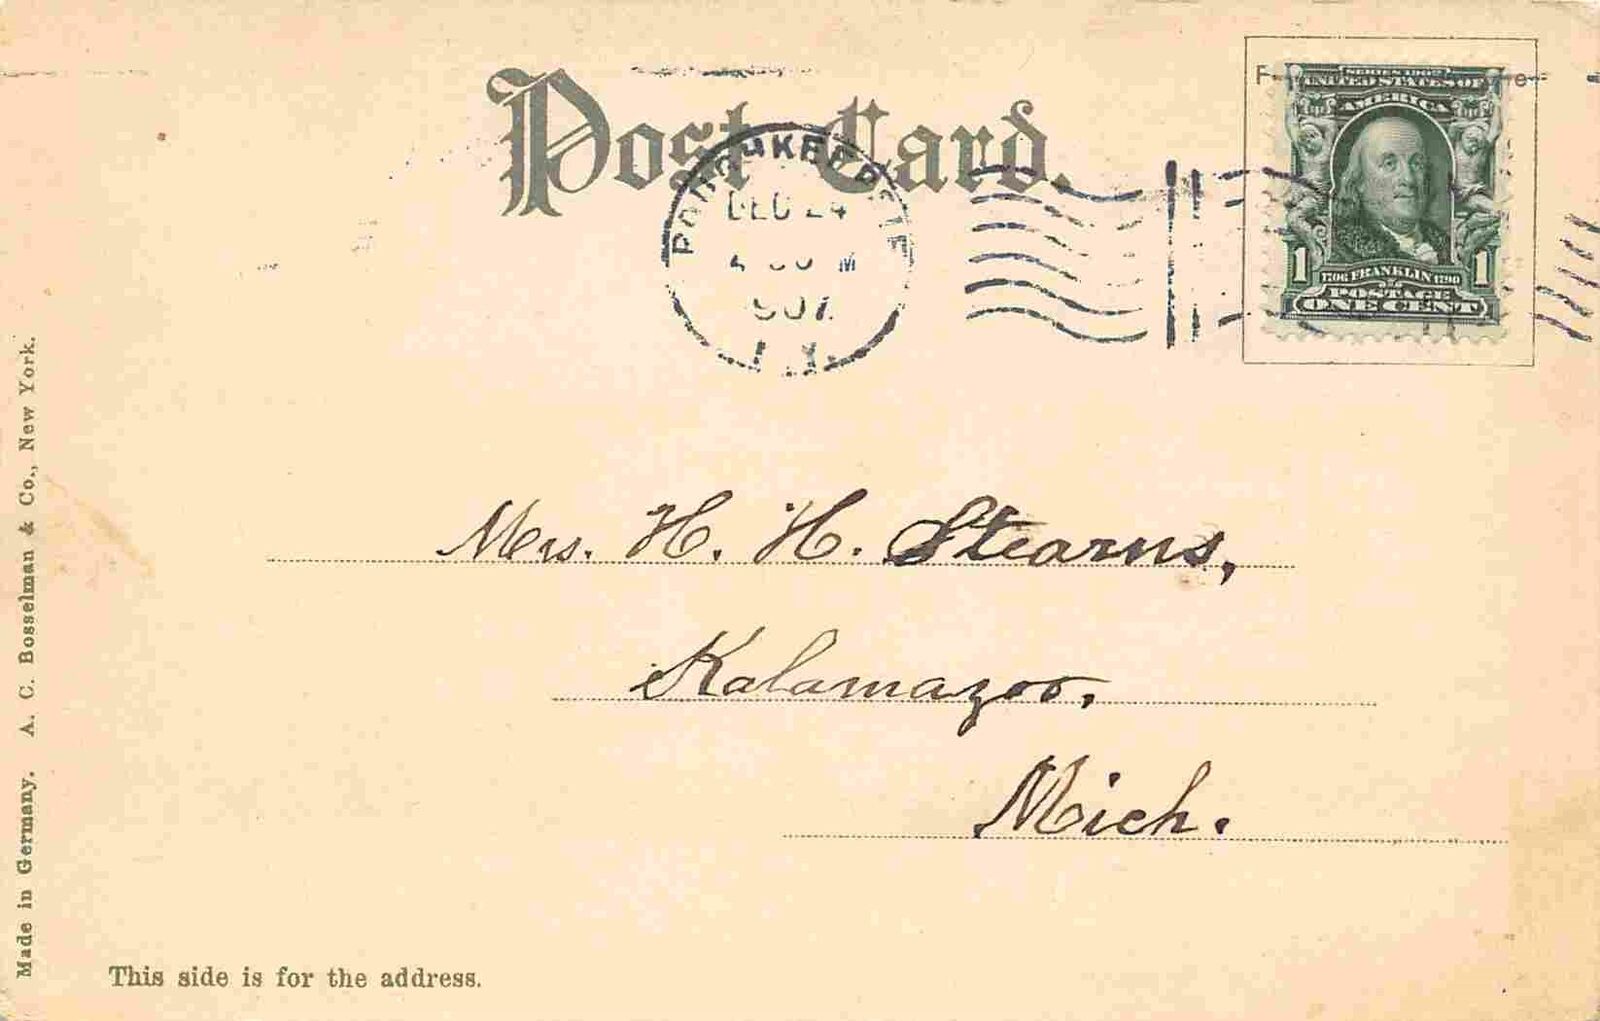 Post Card.
POUGHKEEPSIE
DEC 24
M
907
N.Y.
SERIES 1902
UNITED STATES OF
AMERICA
1 1706 FRANKLIN 1790 1
POSTAGE
ONE CENT
Mrs. H. H. Stearns,
Kalamazoo,
Mich.
This side is for the address.
Made in Germany. A. C. Bosselman & Co., New York.